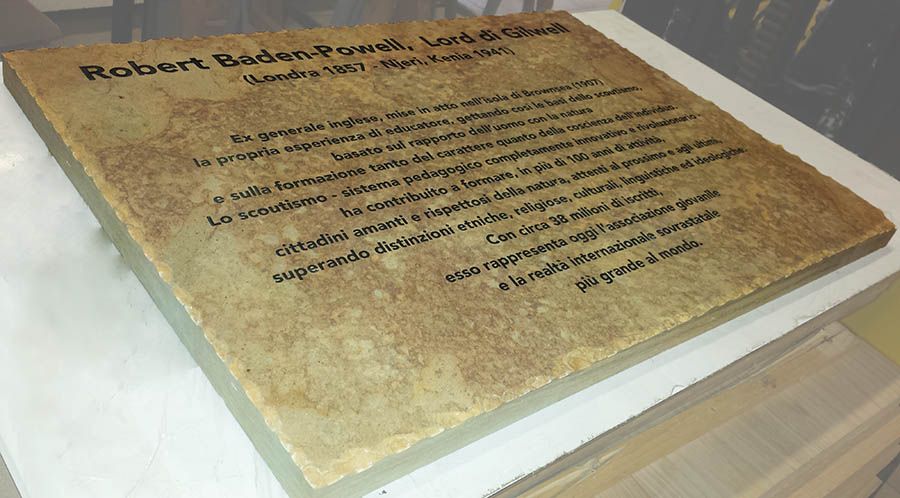 Robert Baden-Powell, Lord di Gilwell
(Londra 1857 - Njeri, Kenia 1941)
Ex generale inglese, mise in atto nell'isola di Brownsea (1907)
la propria esperienza di educatore, gettando così le basi dello scoutismo,
basato sul rapporto dell'uomo con la natura
e sulla formazione tanto del carattere quanto della coscienza dell'individuo.
Lo scoutismo - sistema pedagogico completamente innovativo e rivoluzionario -
ha contribuito a formare, in più di 100 anni di attività,
cittadini amanti e rispettosi della natura, attenti al prossimo e agli ultimi,
superando distinzioni etniche, religiose, culturali, linguistiche ed ideologiche.
Con circa 38 milioni di iscritti,
esso rappresenta oggi l'associazione giovanile
e la realtà internazionale sovrastatale
più grande al mondo.